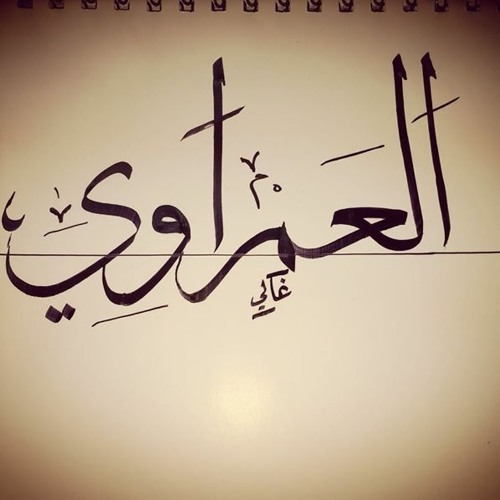 العمراوي
غالي